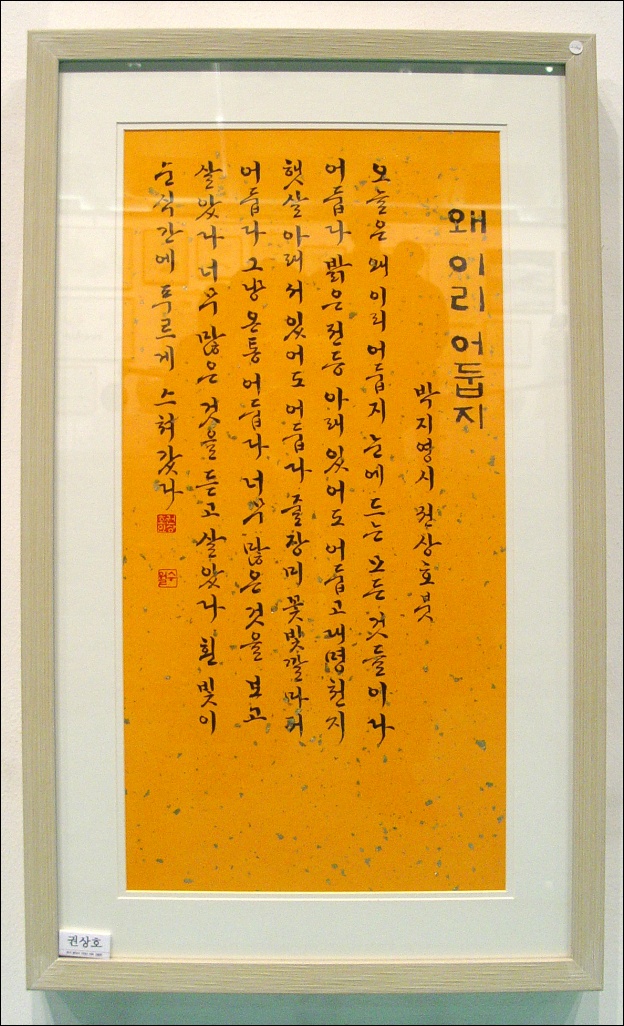 왜 이리 어둡지
박지영 시 권상호 붓
오늘은 왜 이리 어둡지 눈에 드는 모든 것들이 다
어둡다 밝은 전등 아래 있어도 어둡고 대명천지
햇살 아래 서 있어도 어둡다 줄장미 꽃빛깔마저
어둡다 그냥 온통 어둡다 너무 많은 것을 보고
살았다 너무 많은 것을 듣고 살았다 흰 빛이
순식간에 푸르게 스쳐갔다
권상호